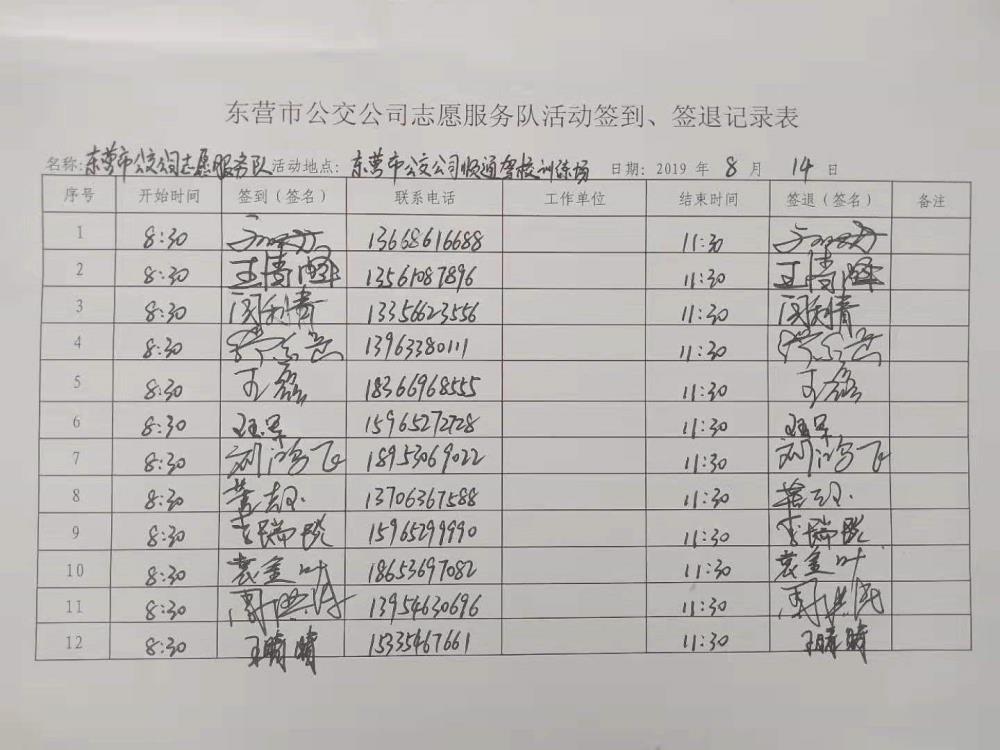 东营市公交公司志愿服务队活动签到、签退记录表
名称:东营市公交公司志愿服务队 活动地点: 东营市公交公司顺通驾校训练场 日期: 2019 年 8 月 14 日
序号 开始时间 签到(签名) 联系电话 工作单位 结束时间 签退(签名) 备注
1 8:30 13668616688 11:30
2 8:30 13561087896 11:30
3 8:30 闵利青 13356623556 11:30 闵利青
4 8:30 13963380111 11:30
5 8:30 王磊 18366968555 11:30 王磊
6 8:30 15965272728 11:30
7 8:30 刘鸿飞 18953069022 11:30 刘鸿飞
8 8:30 13706367588 11:30
9 8:30 李瑞悦 15965299990 11:30 李瑞悦
10 8:30 袁金叶 18653697082 11:30 袁金叶
11 8:30 13954630696 11:30
12 8:30 王晴晴 15335467661 11:30 王晴晴